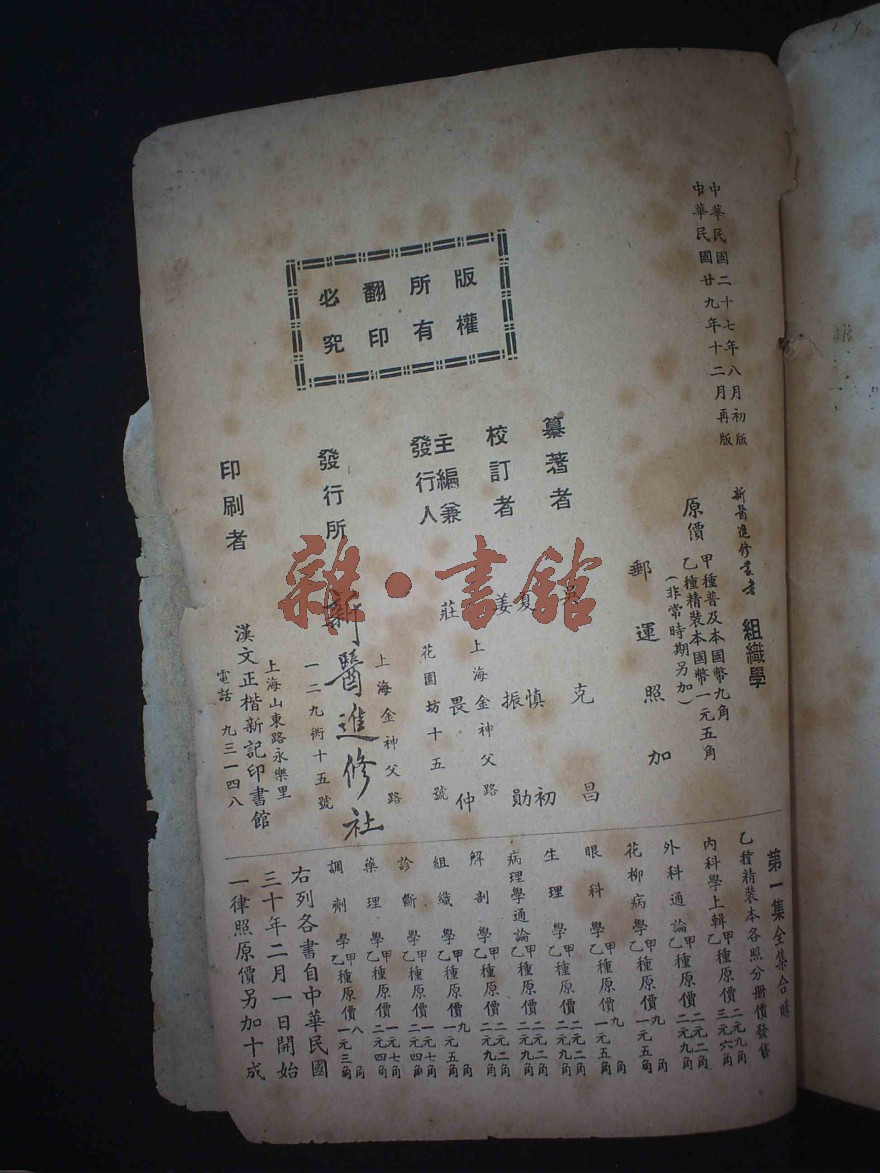 中華民國二十七年八月初版
中華民國廿九年十二月再版
新醫進修叢書 組織學
原價
甲種普及本國幣九角
乙種精裝本國幣一元五角
(非常時期另加)
郵運照加
版權
所有
翻印
必究
纂著者 吳克昌
校訂者 夏慎初
姜振勛
主編兼
發行人 莊畏仲
上海金神父路
花園坊十五號
發行所 新醫進修社
上海金神父路
一二九衖十五號
印刷者 漢文正楷新記印書館
上海山東路永樂里
電話 九三一四八
雜·書館
第一集全集合購
乙種精裝本各照分冊價發售
內科學上輯 甲種原價 二元九角
乙種原價 三元六角
外科通論 甲種原價 二元二角
乙種原價 二元九角
花柳病學 甲種原價 九角
乙種原價 一元五角
眼科學 甲種原價 九角
乙種原價 一元五角
生理學 甲種原價 二元二角
乙種原價 二元九角
病理學通論 甲種原價 二元二角
乙種原價 二元九角
解剖學 甲種原價 二元二角
乙種原價 二元九角
組織學 甲種原價 九角
乙種原價 一元五角
診斷學 甲種原價 一元七角
乙種原價 二元四角
藥理學 甲種原價 一元七角
乙種原價 二元四角
調劑學 甲種原價 八角
乙種原價 一元三角
右列各書自中華民國
三十年二月一日開始
一律照原價另加十成